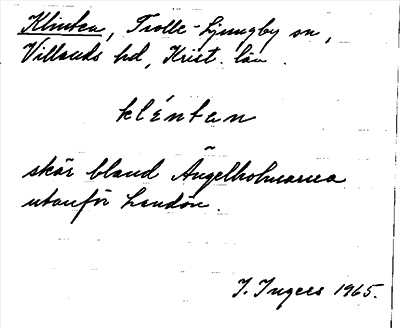 Klinten, Trolle-Ljungby sn,
Villands hd, Krist. län.
klénten
skär bland Ängelholmarna
utanför Landön.
I. Ingers 1965.